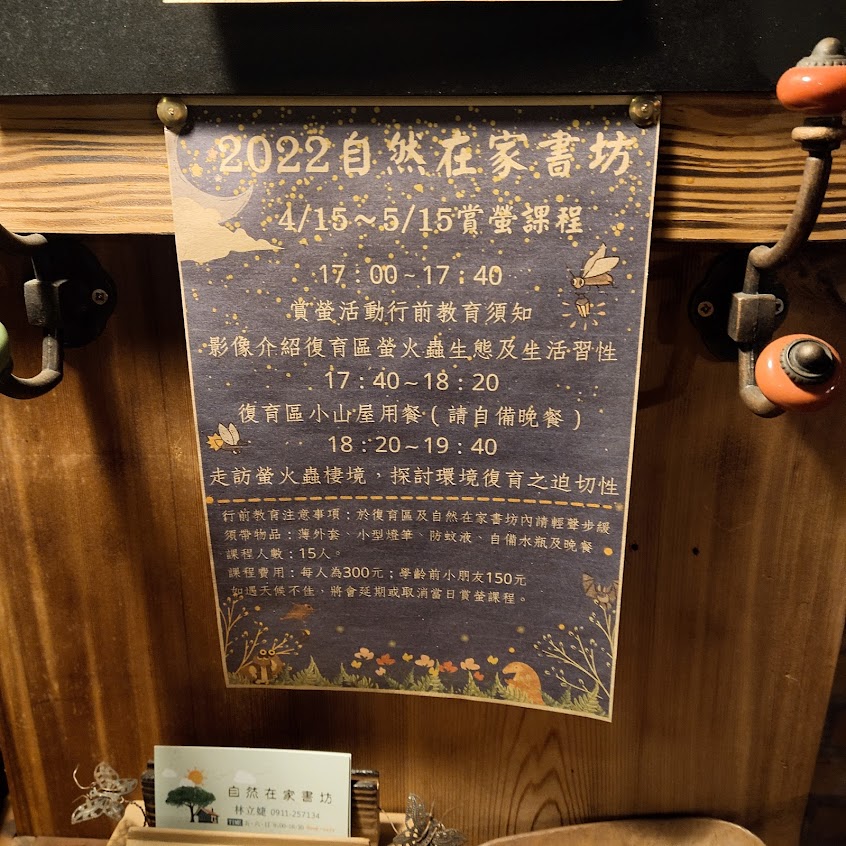 2022自然在家書坊
4/15～5/15賞螢課程
17：00~17：40
賞螢活動行前教育須知
影像介紹復育區螢火蟲生態及生活習性
17：40~18：20
復育區小山屋用餐（請自備晚餐）
18：20~19：40
走訪螢火蟲棲境，探討環境復育之迫切性
行前教育注意事項：於復育區及自然在家書坊內請輕聲步緩
須帶物品：薄外套、小型燈筆、防蚊液、自備水瓶及晚餐
課程人數：15人。
課程費用：每人為300元；學齡前小朋友150元
如遇天候不佳，將會延期或取消當日賞螢課程。
自然在家書坊
林立婕 0911-257134
TIME